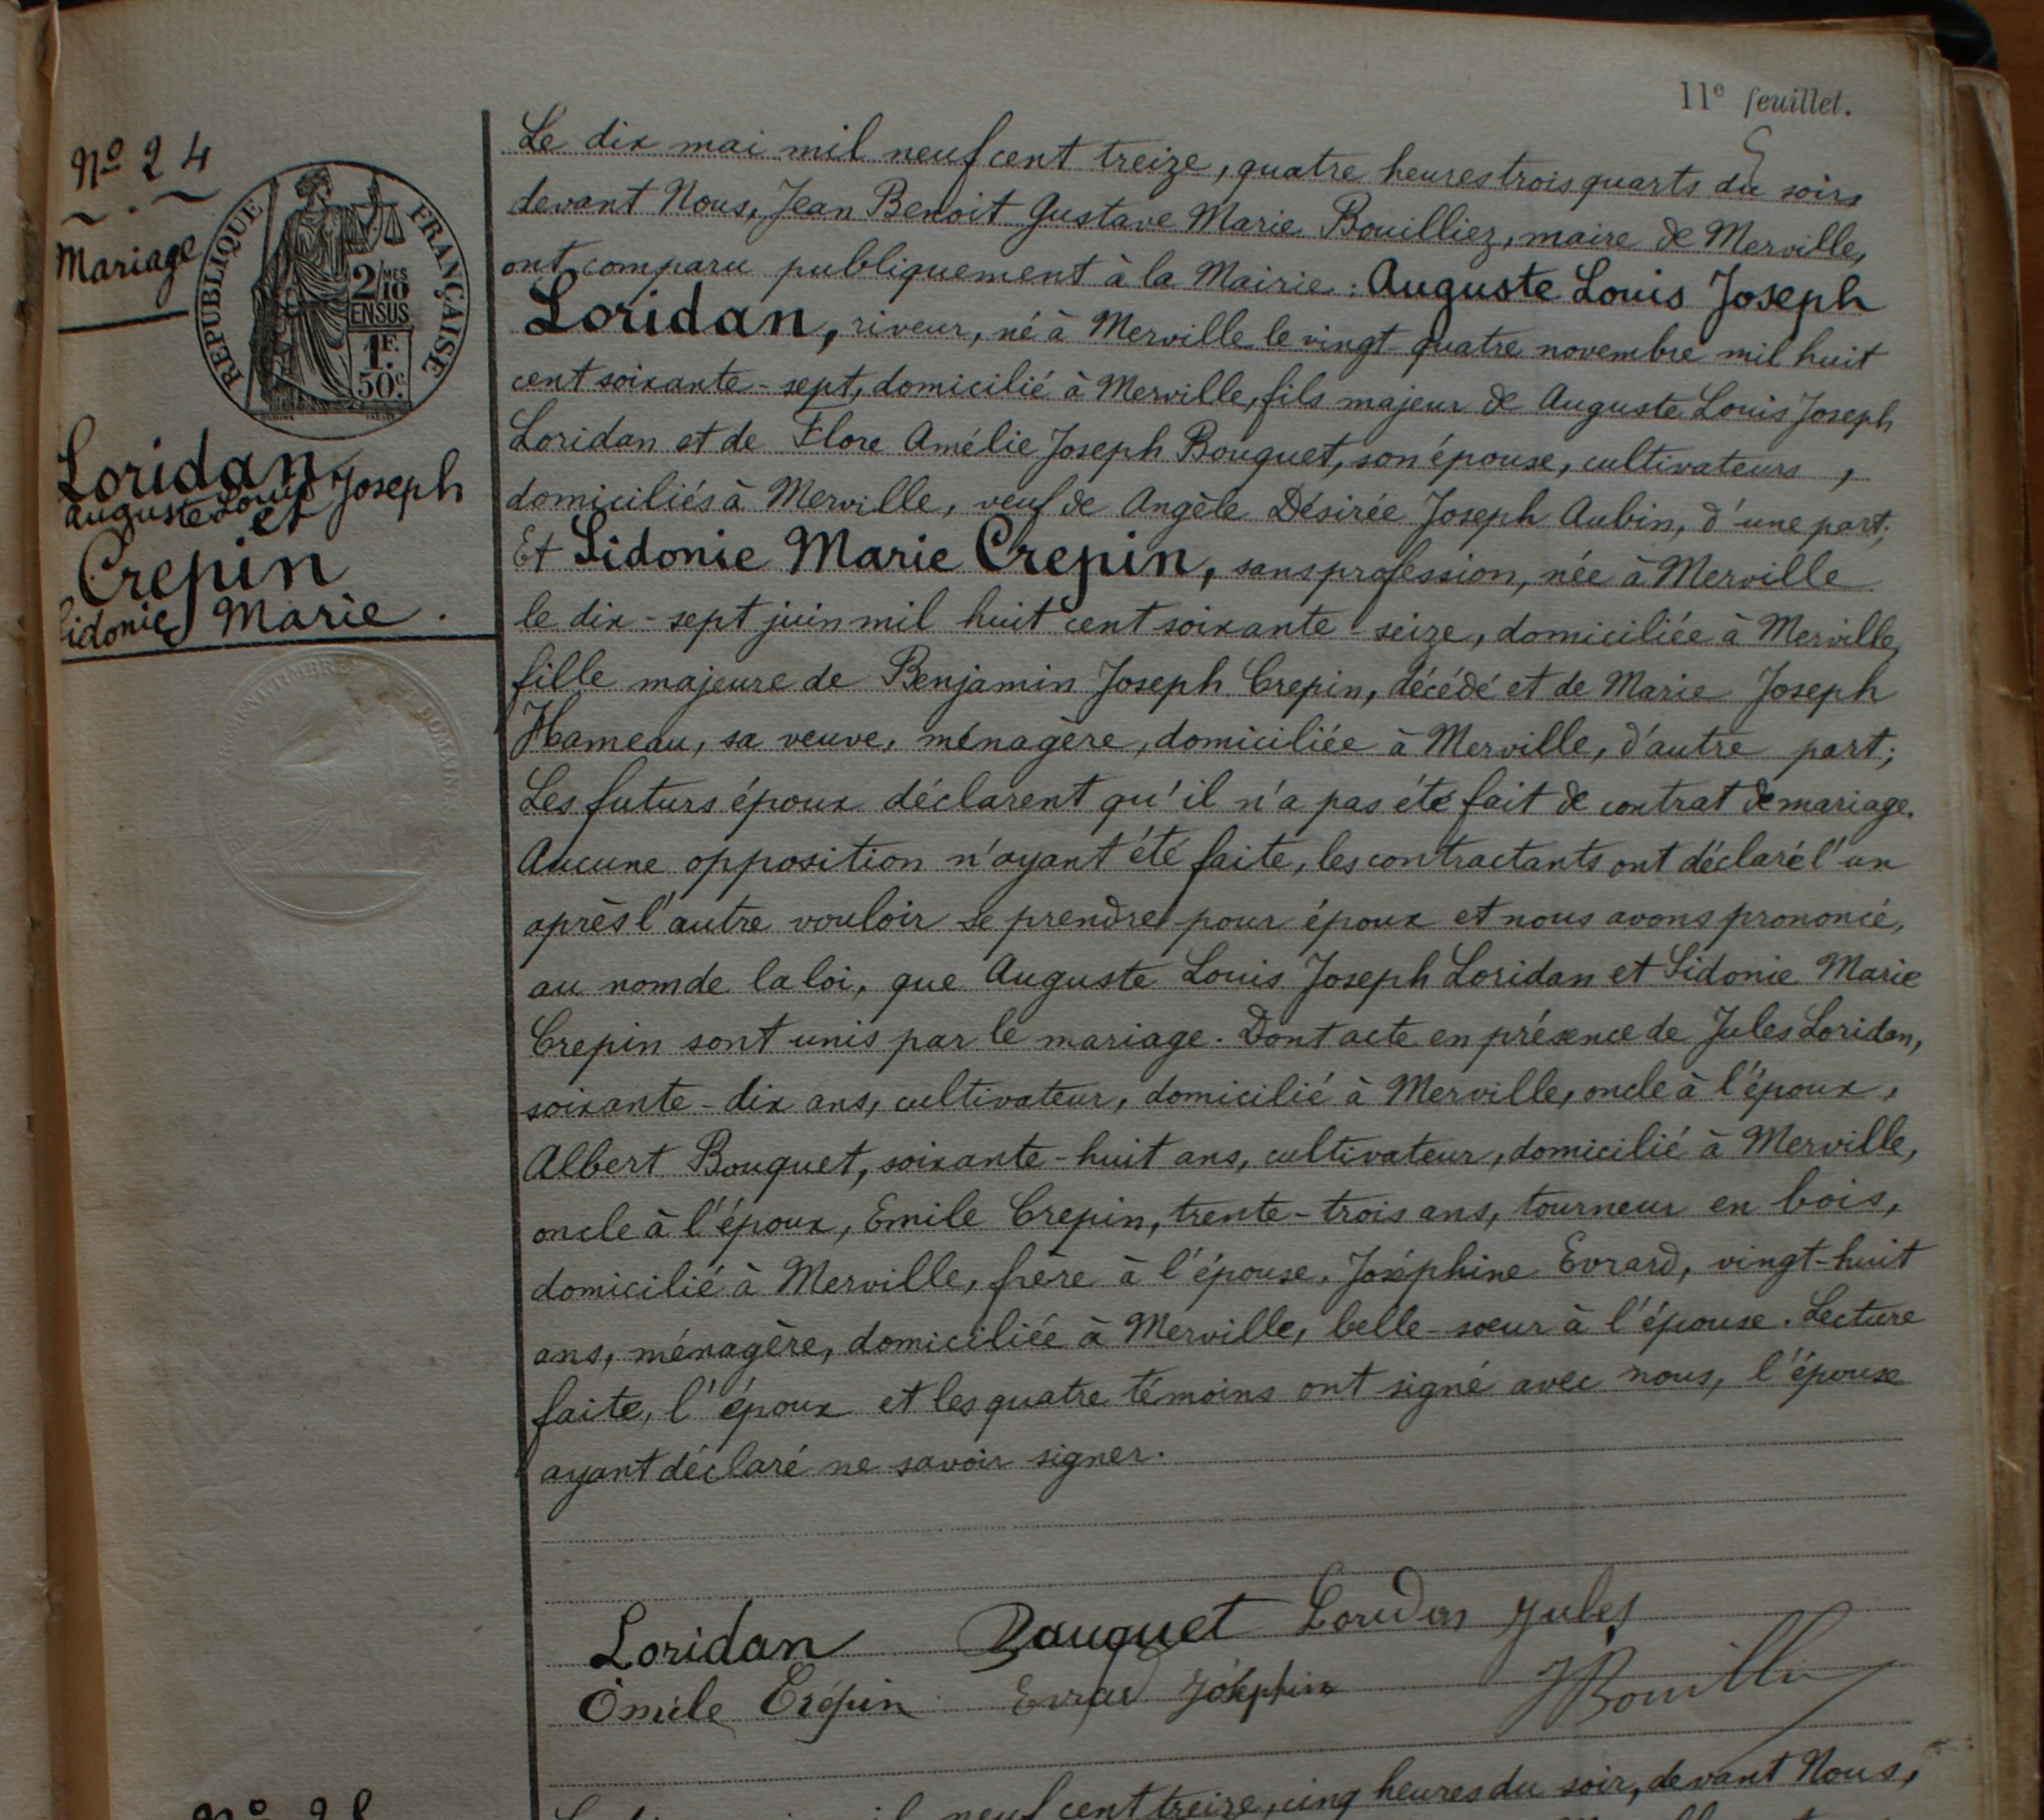 11e feuillet.
No 24
Mariage
RÉPUBLIQUE FRANÇAISE
2/10 MES
EN SUS
1F.
50c.
Loridan
Auguste Louis Joseph
et
Crepin
Sidonie Marie.
Le dix mai mil neuf cent treize, quatre heures trois quarts du soir,
devant Nous, Jean Benoit Gustave Marie Bouilliez, maire de Merville,
ont comparu publiquement à la Mairie : Auguste Louis Joseph
Loridan, riveur, né à Merville le vingt-quatre novembre mil huit
cent soixante-sept, domicilié à Merville, fils majeur de Auguste Louis Joseph
Loridan et de Flore Amélie Joseph Bouquet, son épouse, cultivateurs,
domiciliés à Merville, veuf de Angèle Désirée Joseph Aubin, d'une part;
Et Sidonie Marie Crepin, sans profession, née à Merville
le dix-sept juin mil huit cent soixante-seize, domiciliée à Merville,
fille majeure de Benjamin Joseph Crepin, décédé et de Marie Joseph
Hameau, sa veuve, ménagère, domiciliée à Merville, d'autre part;
Les futurs époux déclarent qu'il n'a pas été fait de contrat de mariage.
Aucune opposition n'ayant été faite, les contractants ont déclaré l'un
après l'autre vouloir se prendre pour époux et nous avons prononcé,
au nom de la loi, que Auguste Louis Joseph Loridan et Sidonie Marie
Crepin sont unis par le mariage. Dont acte en présence de Jules Loridan,
soixante-dix ans, cultivateur, domicilié à Merville, oncle à l'époux,
Albert Bouquet, soixante-huit ans, cultivateur, domicilié à Merville,
oncle à l'époux, Emile Crepin, trente-trois ans, tourneur en bois,
domicilié à Merville, frère à l'épouse, Joséphine Evrard, vingt-huit
ans, ménagère, domiciliée à Merville, belle-sœur à l'épouse. Lecture
faite, l'époux et les quatre témoins ont signé avec nous, l'épouse
ayant déclaré ne savoir signer.
Loridan Bouquet Loridan Jules
Émile Crépin Evrard Joséphine JBouilliez
neuf cent treize, cinq heures du soir, devant Nous,